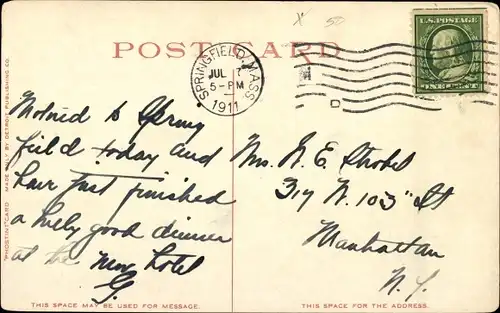 X 50
POST CARD
U.S. POSTAGE
ONE CENT
SPRINGFIELD, MASS.
JUL
5-PM
1911
Motored to Spring
field today and
have just finished
a lively good dinner
at the New hotel
G.
Mrs. N. E. Strobel
317 W. 103" St
Manhattan
N. Y.
"PHOSTINT" CARD MADE ONLY BY DETROIT PUBLISHING CO.
THIS SPACE MAY BE USED FOR MESSAGE.
THIS SPACE IS FOR THE ADDRESS.